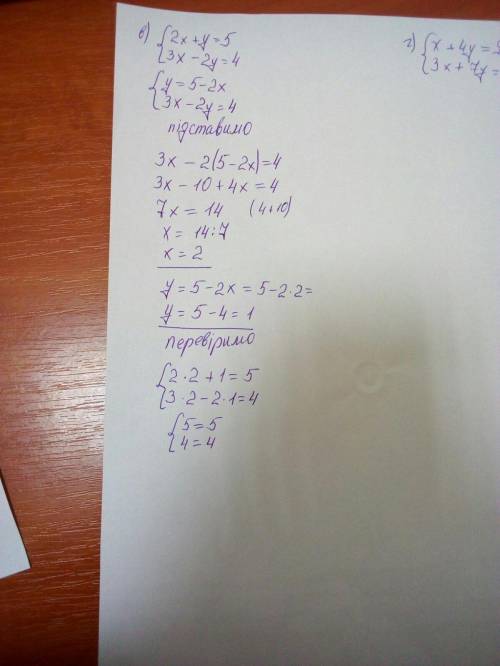 в) {2x+y=5
{3x-2y=4
{y=5-2x
{3x-2y=4
підставимо
3x-2(5-2x)=4
3x-10+4x=4
7x=14 (4+10)
x=14:7
x=2
y=5-2x=5-2·2=
y=5-4=1
перевіримо
{2·2+1=5
{3·2-2·1=4
{5=5
{4=4
г) {x+4y=
{3x+7y=